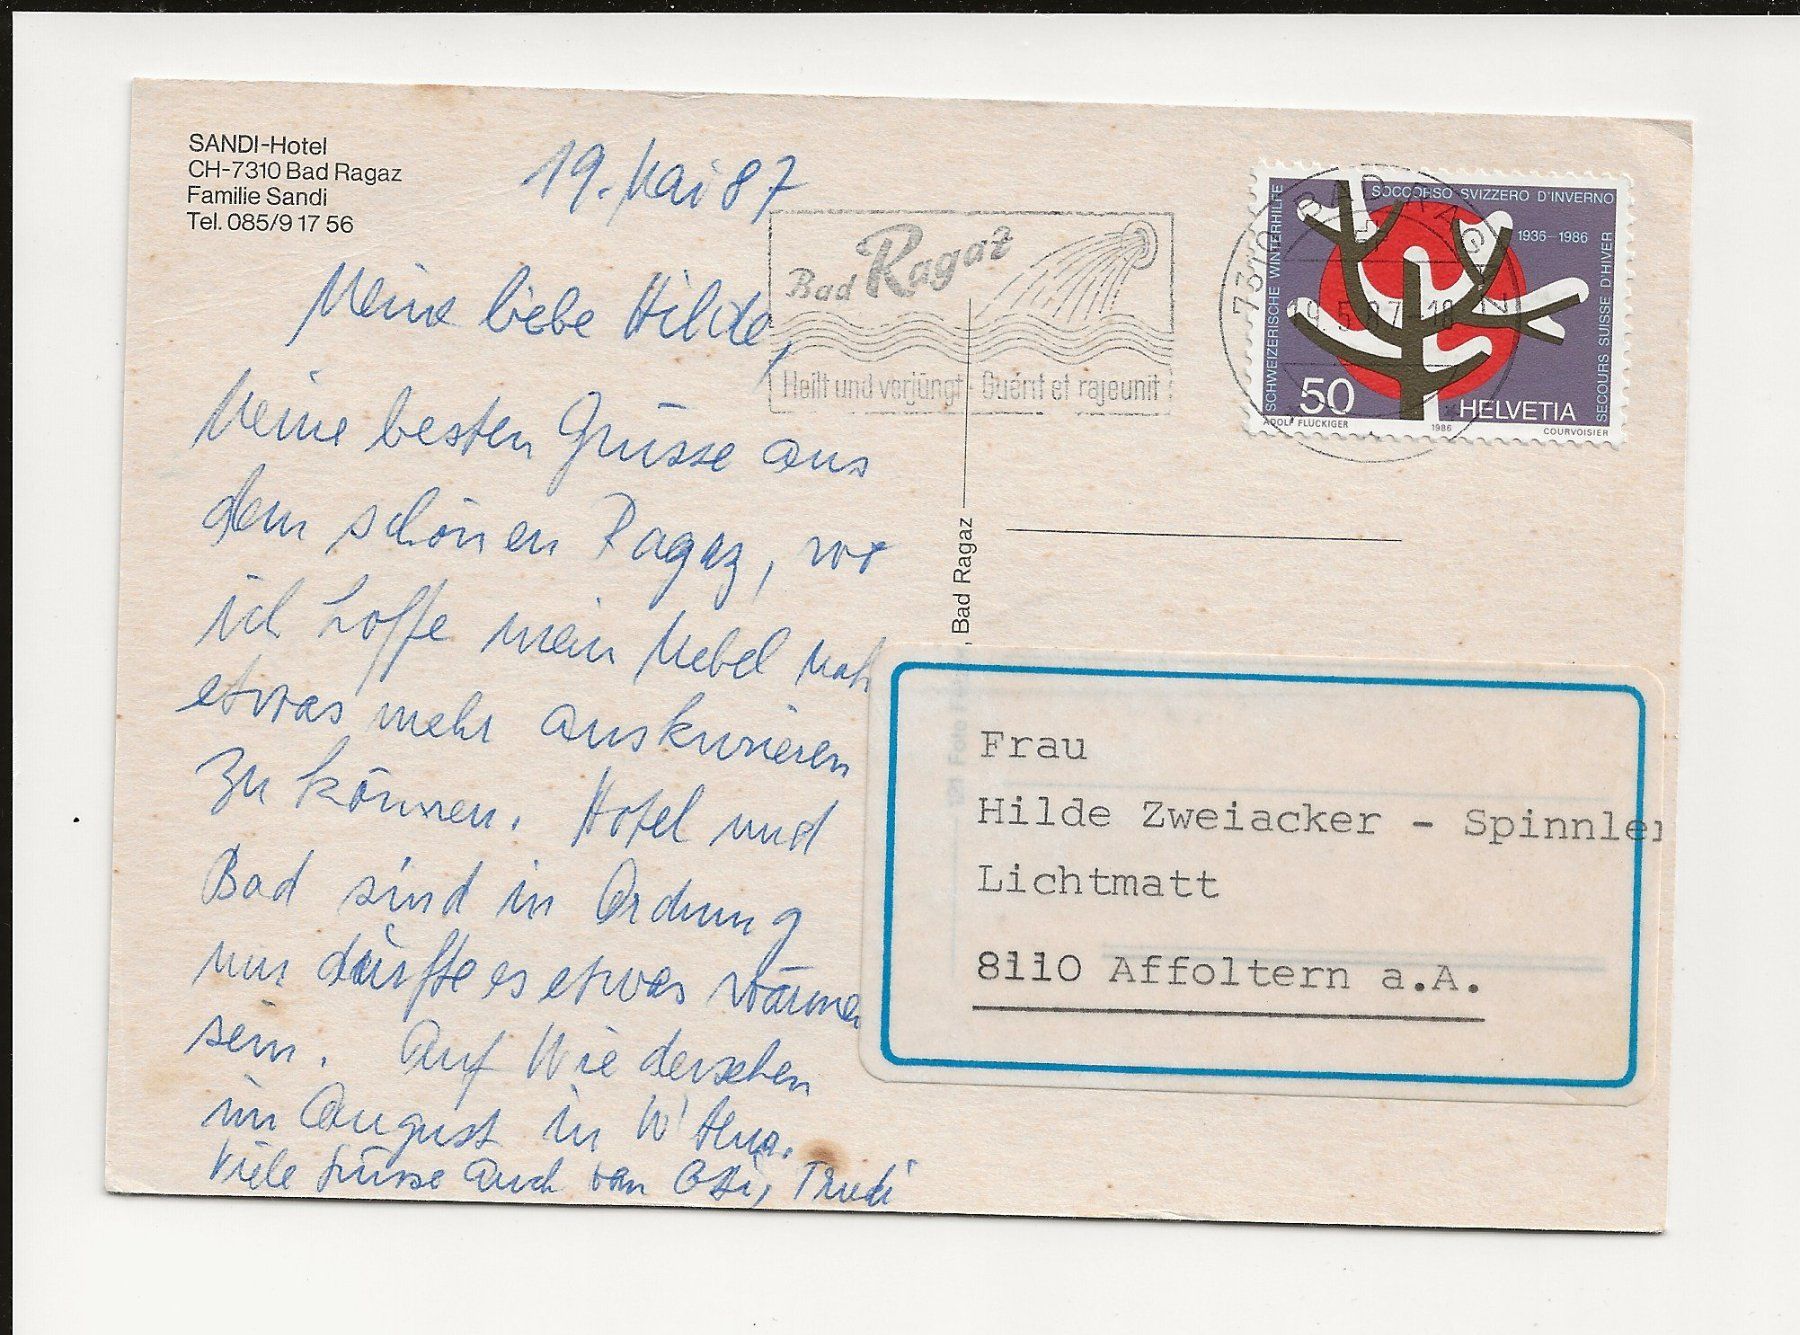 SANDI-Hotel
CH-7310 Bad Ragaz
Familie Sandi
Tel. 085/9 17 56
19. Mai 87
Meine liebe Hilde,
Meine besten Grüsse aus
dem schönen Ragaz, wo
ich hoffe mein Uebel noch
etwas mehr auskurieren
zu können. Hotel und
Bad sind in Ordnung
nur dürfte es etwas wärmer
sein. Auf Wiedersehen
im August in
Viele Grüsse auch von Trudi
Bad Ragaz
Heilt und verjüngt - Guérit et rajeunit
7310 BAD RAGAZ 2
19.5.87 18
SCHWEIZERISCHE WINTERHILFE
SOCCORSO SVIZZERO D'INVERNO
1936-1986
SECOURS SUISSE D'HIVER
50
HELVETIA
ADOLF FLÜCKIGER
1986
COURVOISIER
, Bad Ragaz
Foto
Frau
Hilde Zweiacker - Spinnler
Lichtmatt
8110 Affoltern a.A.